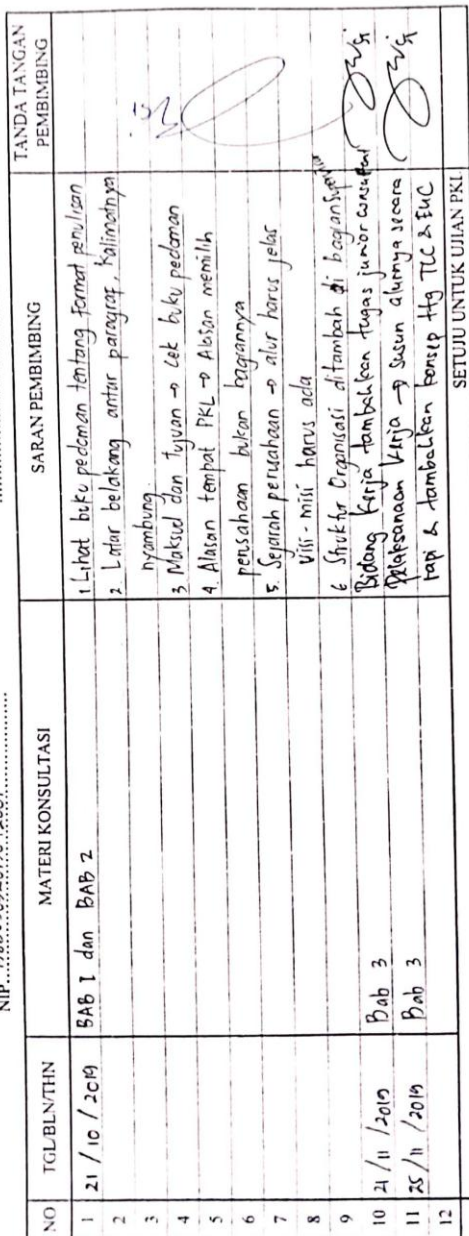 NIP
NO TGL/BLN/THN MATERI KONSULTASI SARAN PEMBIMBING TANDA TANGAN PEMBIMBING
1 21 / 10 / 2019 BAB 1 dan BAB 2 1 Lihat buku pedoman tentang format penulisan
2 2 Latar belakang antar paragraf, Kalimatnya
3 nyambung.
4 3 Maksud dan Tujuan → Cek buku pedoman
5 4 Alasan tempat PKL → Alasan memilih
6 perusahaan bukan bagiannya
7 5. Sejarah perusahaan → alur harus jelas
8 Visi - misi harus ada
9 6 Struktur Organisasi ditambah di bagian
10 21 / 11 / 2019 Bab 3 Bidang Kerja tambahkan tugas junior consultan
11 25 / 11 / 2019 Bab 3 Pelaksanaan Kerja → Susun alurnya secara
12 rapi & tambahkan konsep ttg TLC & EUC
SETUJU UNTUK UJIAN PKL